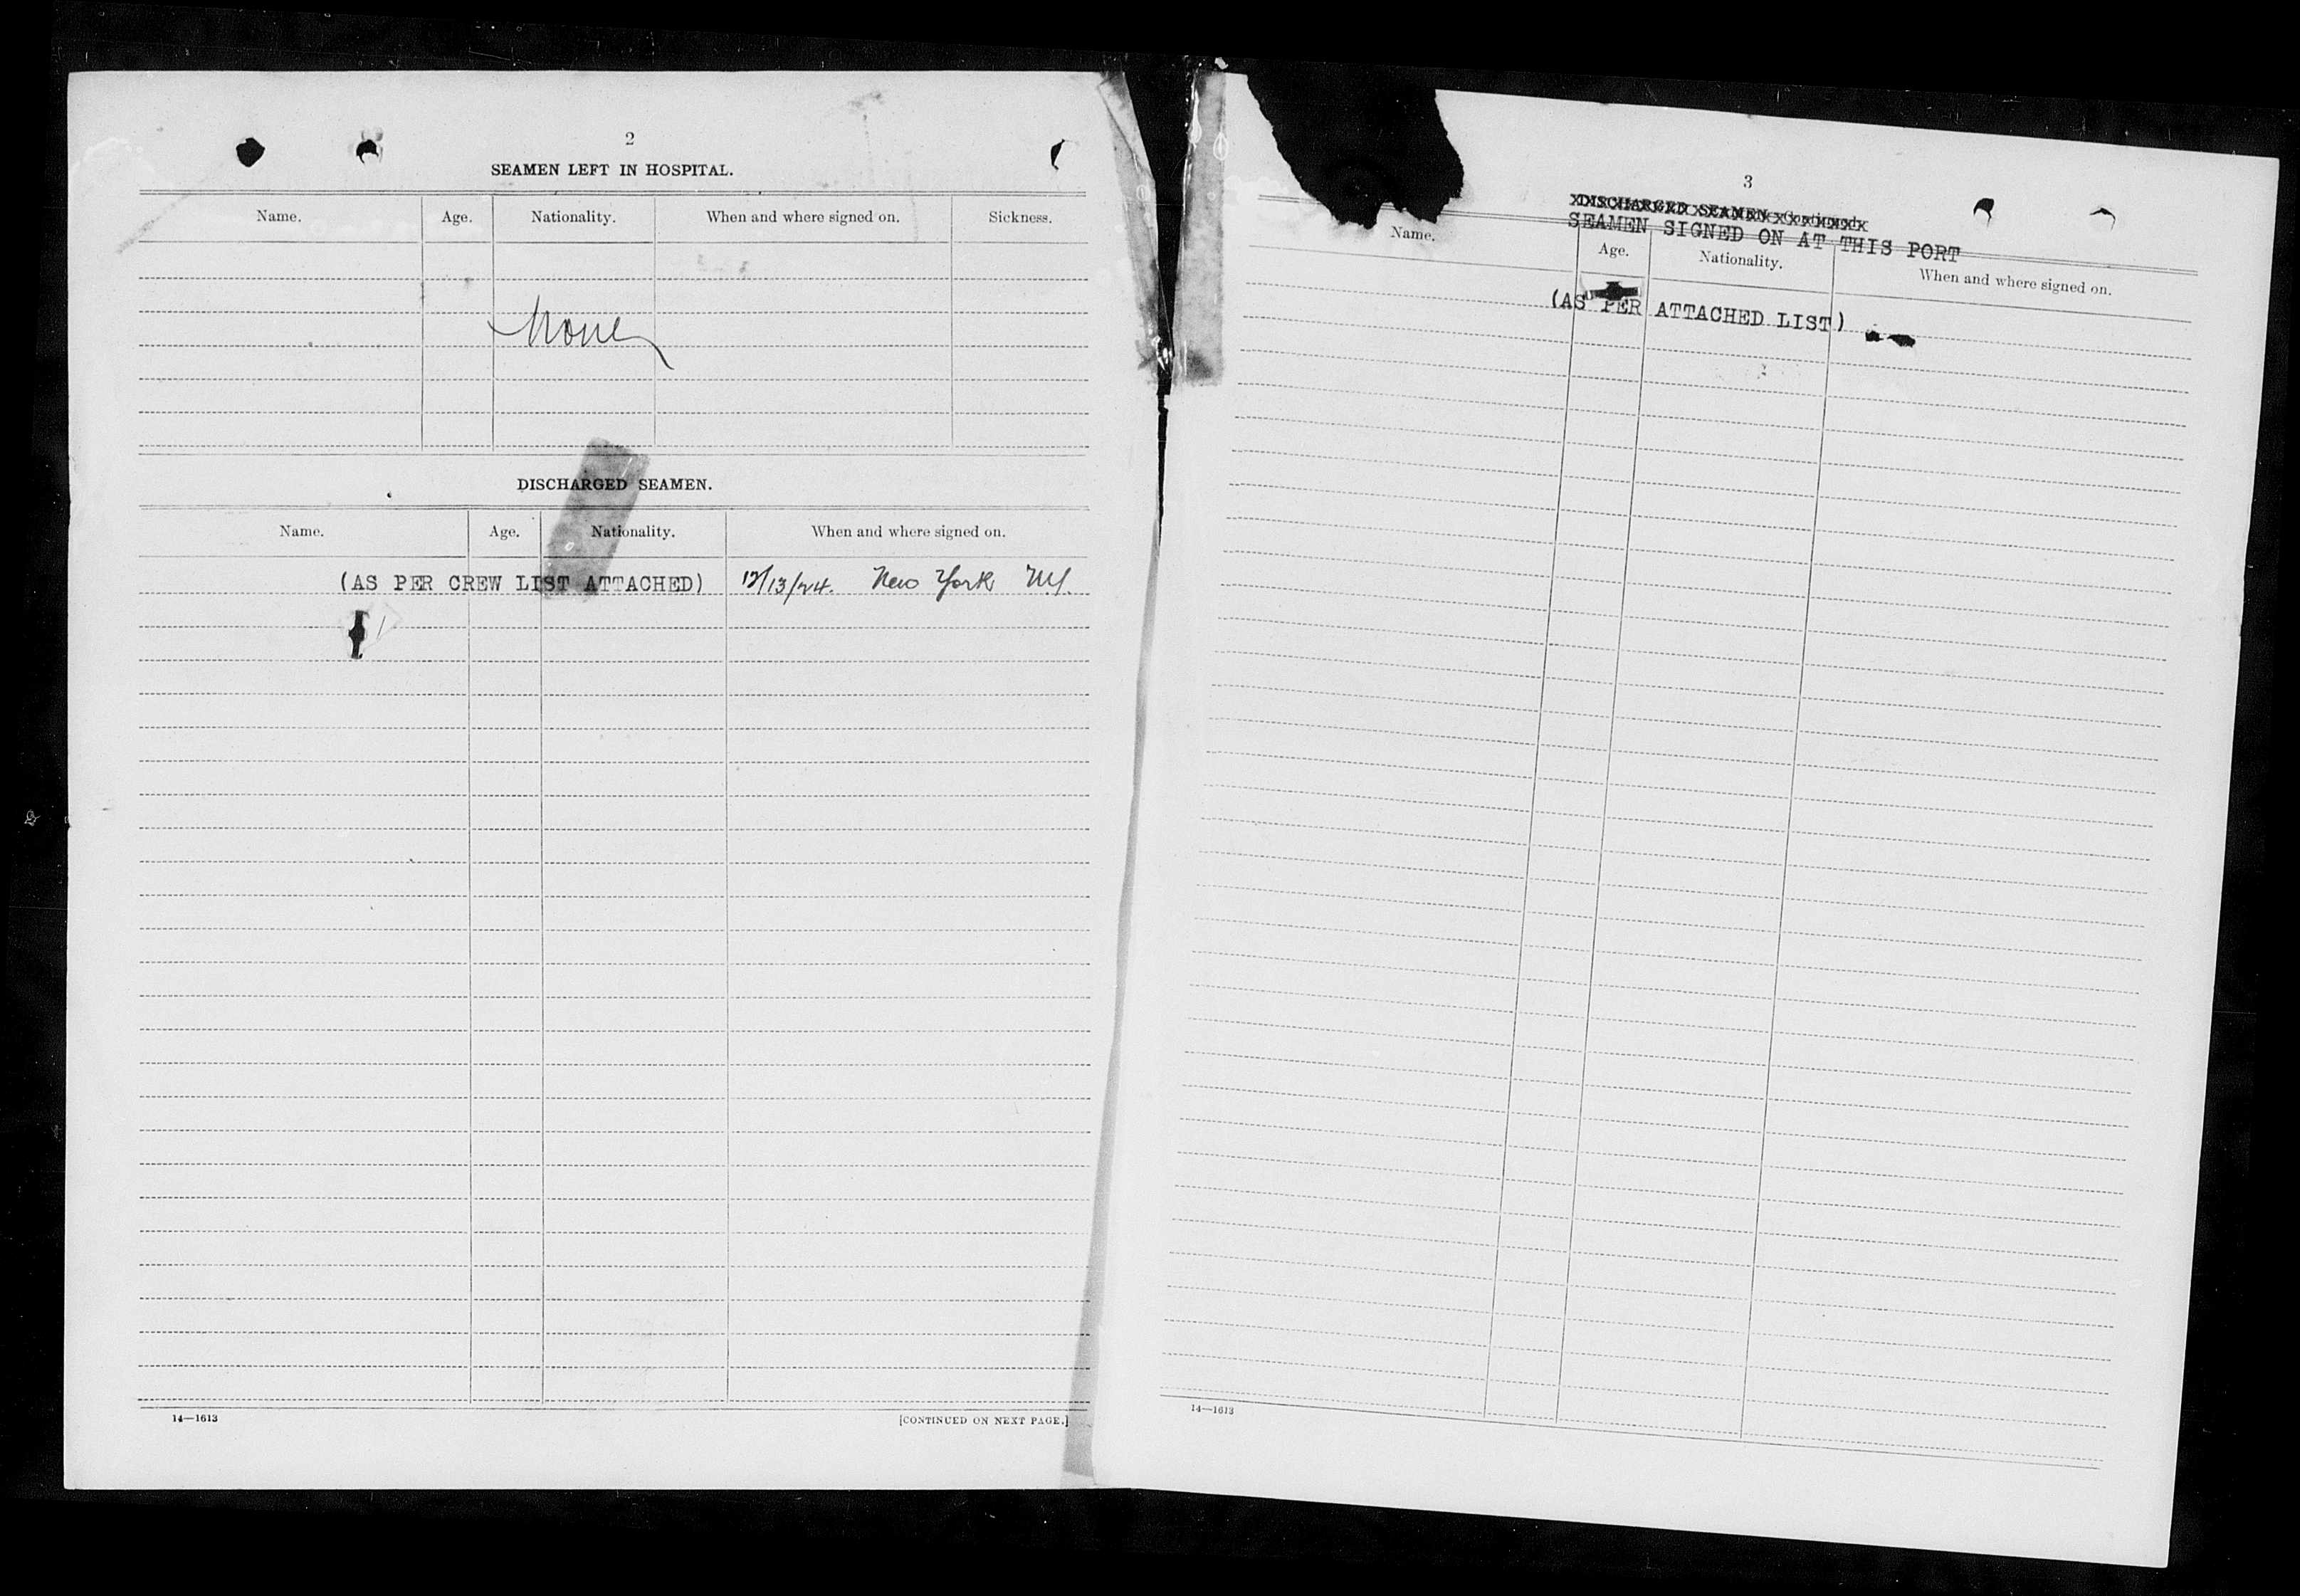 2
SEAMEN LEFT IN HOSPITAL.
Name. Age. Nationality. When and where signed on. Sickness.
None
DISCHARGED SEAMEN.
Name. Age. Nationality. When and where signed on.
(AS PER CREW LIST ATTACHED) 12/13/24. New York N.Y.
14—1613 [CONTINUED ON NEXT PAGE.]
3
DISCHARGED SEAMEN—Continued.
SEAMEN SIGNED ON AT THIS PORT
Name. Age. Nationality. When and where signed on.
(AS PER ATTACHED LIST)
14—1613